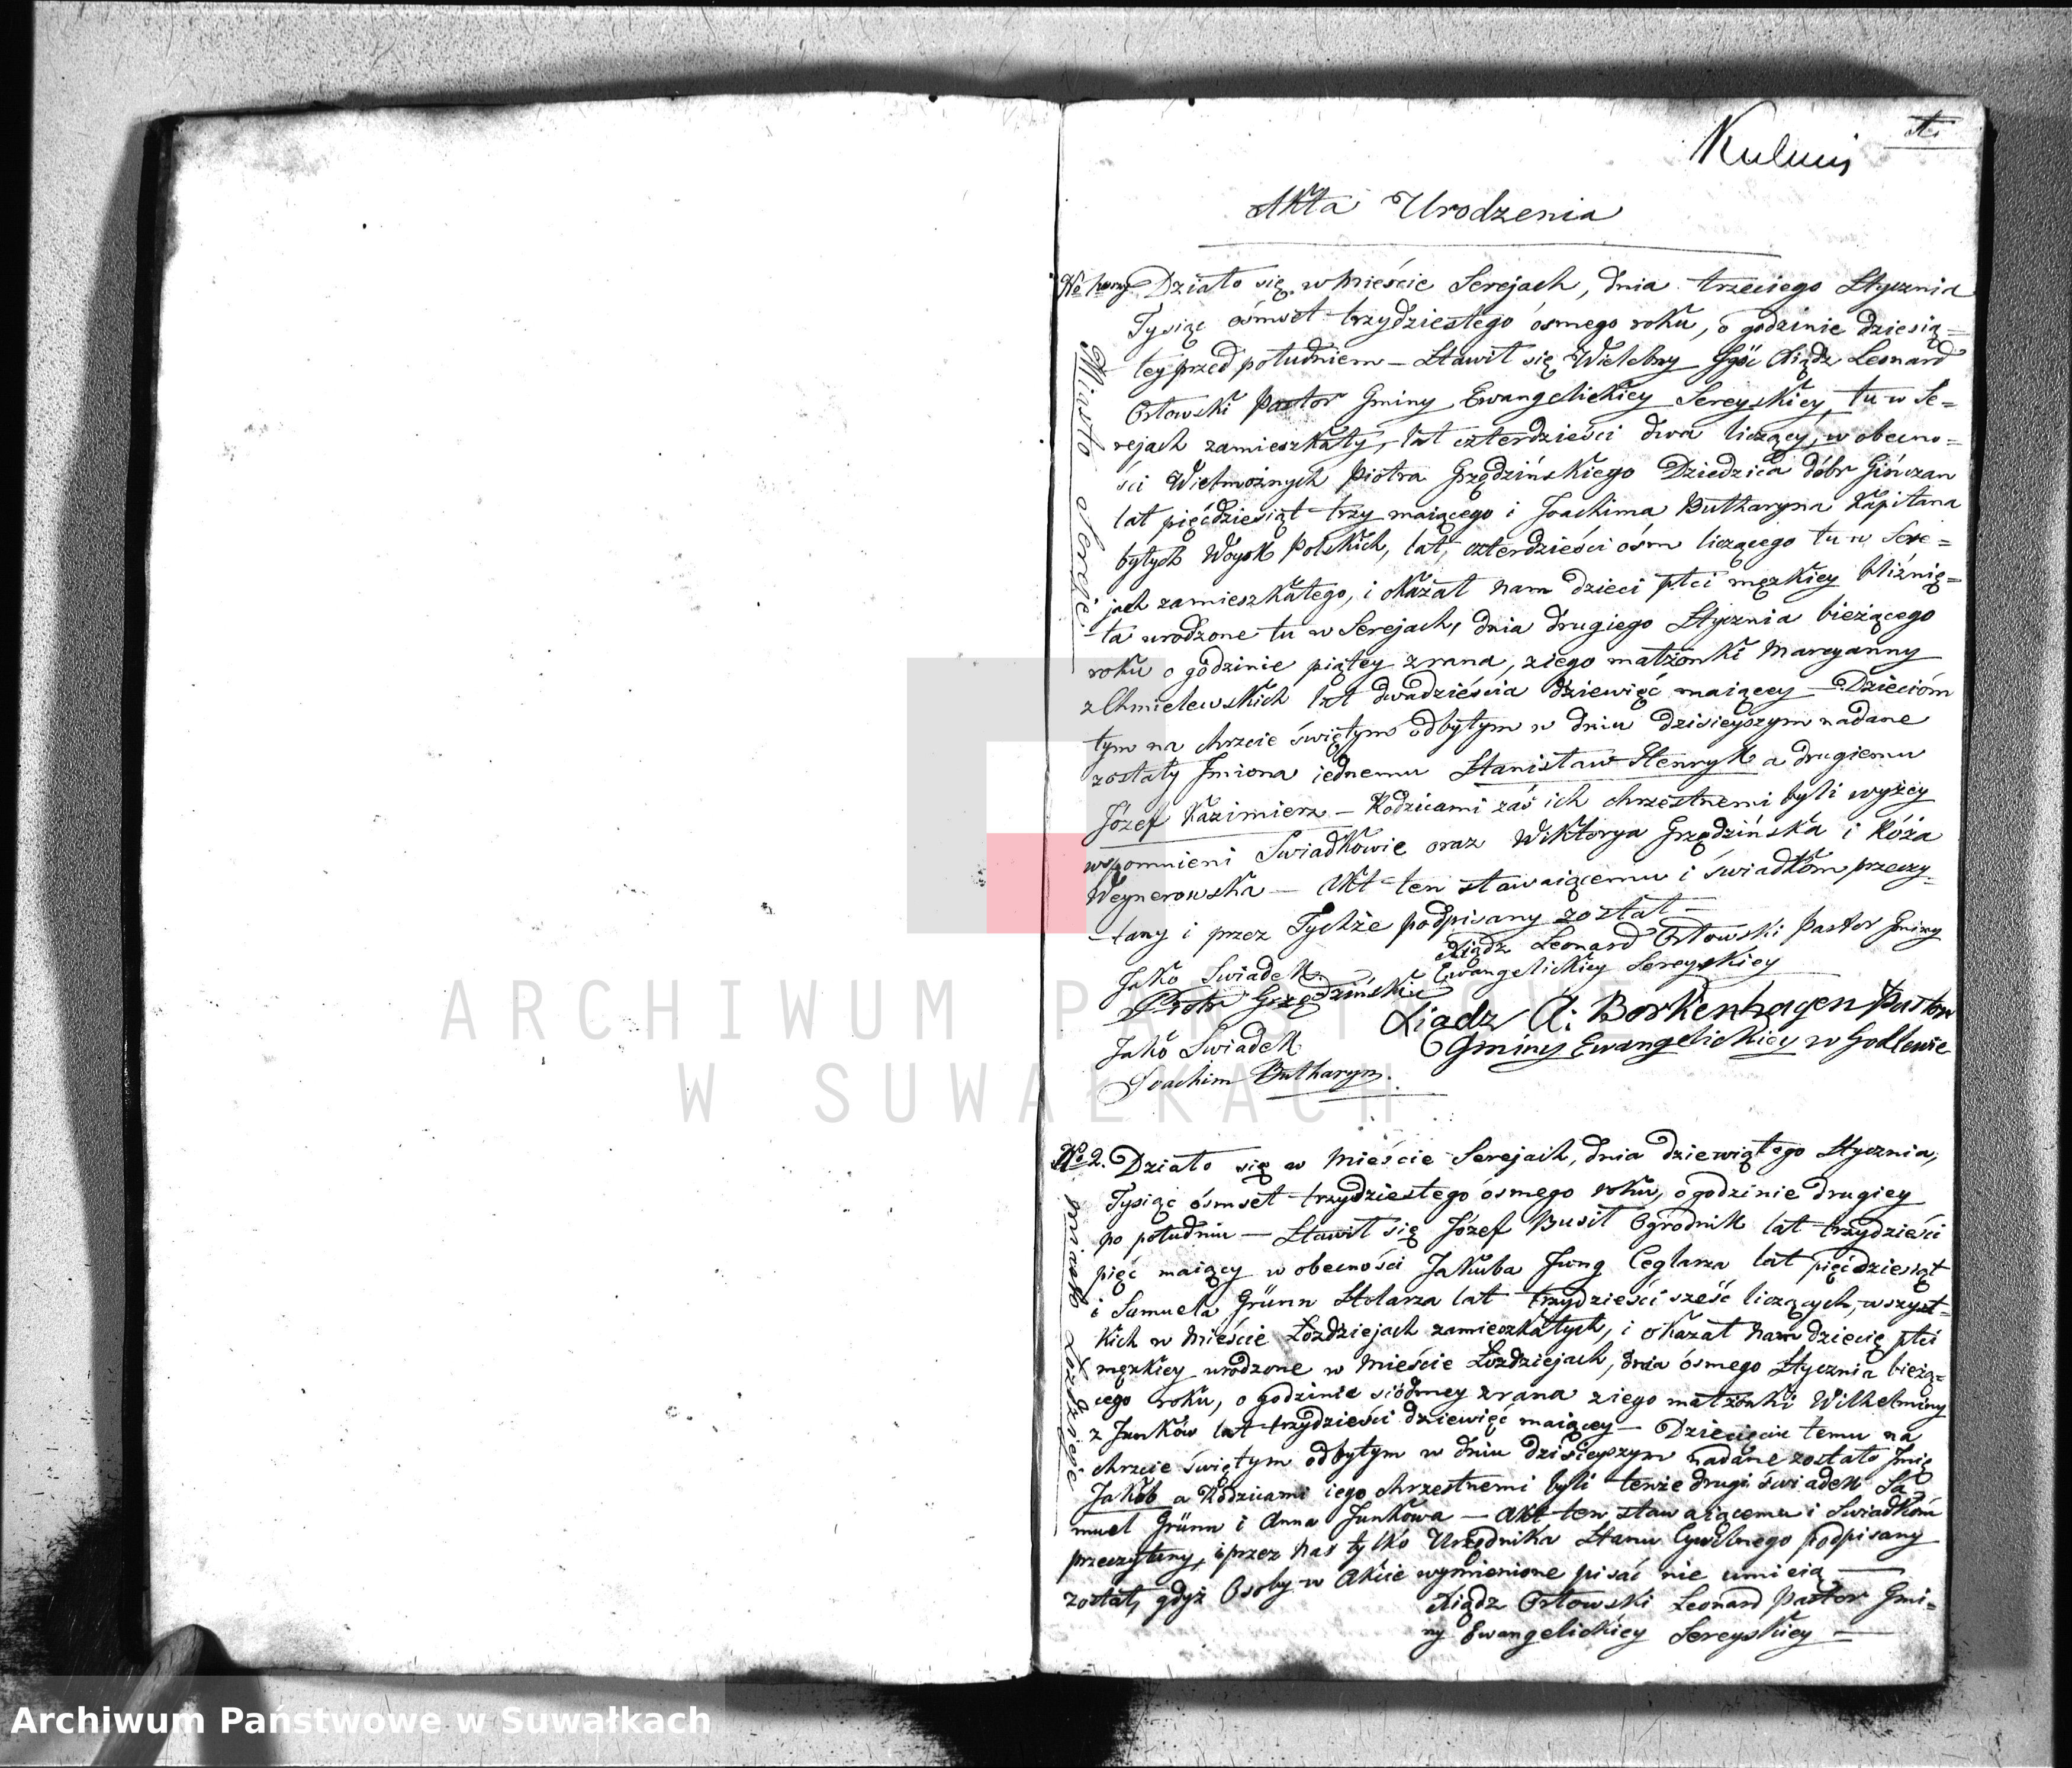 Akta Urodzenia
Działo się w Mieście Serejach, dnia trzeciego Stycznia
Tysiąc ośmset trzydziestego ósmego roku, o godzinie dziesią=
tey przed południem — Stawił się Wielebny Xiądz Leonard
Orłowski Pastor Gminy Ewangelickiey Sereyskiey, tu w Se=
rejach zamieszkały, lat czterdzieści dwa liczący, w obecno=
ści Wielmożnych Piotra Grzędzińskiego Dziedzica dóbr Gińczan
lat pięćdziesiąt trzy maiącego i Joachima Butharyna Kapitana
byłych Woysk Polskich, lat, czterdzieści ośm liczącego tu w Sere=
jach zamieszkałego, i okazał nam dzieci płci męzkiey bliźnię=
ta urodzone tu w Serejach, dnia drugiego Stycznia bieżącego
roku o godzinie piątey zrana, z iego małżonki Maryanny
z Chmielewskich lat dwadzieścia dziewięć maiącey — Dzieciom
tym na chrzcie świętym odbytym w dniu dzisieyszym nadane
zostały Jmiona iednemu Stanisław Henryk a drugiemu
Józef Kazimierz — Rodzicami zaś ich chrzestnemi byli wyżey
wspomnieni Swiadkowie oraz Wiktorya Grzędzińska i Róża
Weynerowska — Akt ten stawaiącemu i świadkom przeczy=
tany i przez Tychże podpisany został —
Xiądz Leonard Orłowski Pastor Gminy
Ewangelickiey Sereyskiey
Jako Swiadek
Piotr Grzędziński
Xiądz A: Borkenhagen Pastor
Gminy Ewangelickiey w Godlewie
Jako Swiadek
Joachim Butharyn.
Miasto Sereje
No 2. Działo się w Mieście Serejach, dnia dziewiątego Stycznia,
Tysiąc ośmset trzydziestego ósmego roku, o godzinie drugiey
po południu — Stawił się Józef Busił Ogrodnik lat trzydzieści
pięć maiący w obecności Jakuba Jung Ceglarza lat pięćdziesiąt
i Samuela Grünn Stolarza lat trzydzieści sześć liczących, wszyst=
kich w Mieście Łozdziejach zamieszkałych, i okazał Nam dziecię płci
męzkiey urodzone w Mieście Łozdziejach, dnia ósmego Stycznia bieżą=
cego roku, o godzinie siódmey zrana z iego małżonki Wilhelminy
z Junków lat trzydzieści dziewięć maiącey — Dziecięciu temu na
chrzcie świętym odbytym w dniu dzisieyszym nadane zostało Jmię
Jakób a Rodzicami iego chrzestnemi byli tenże drugi świadek Sa=
muel Grünn i Anna Junkowa — Akt ten stawaiącemu i Swiadkom
przeczytany, i przez nas tylko Urzędnika Stanu Cywilnego podpisany
został, gdyż Osoby w Akcie wymienione pisać nie umieią —
Xiądz Orłowski Leonard Pastor Gmi=
ny Ewangelickiey Sereyskiey —
Miasto Łozdzieje
ARCHIWUM PAŃSTWOWE
W SUWAŁKACH
Archiwum Państwowe w Suwałkach